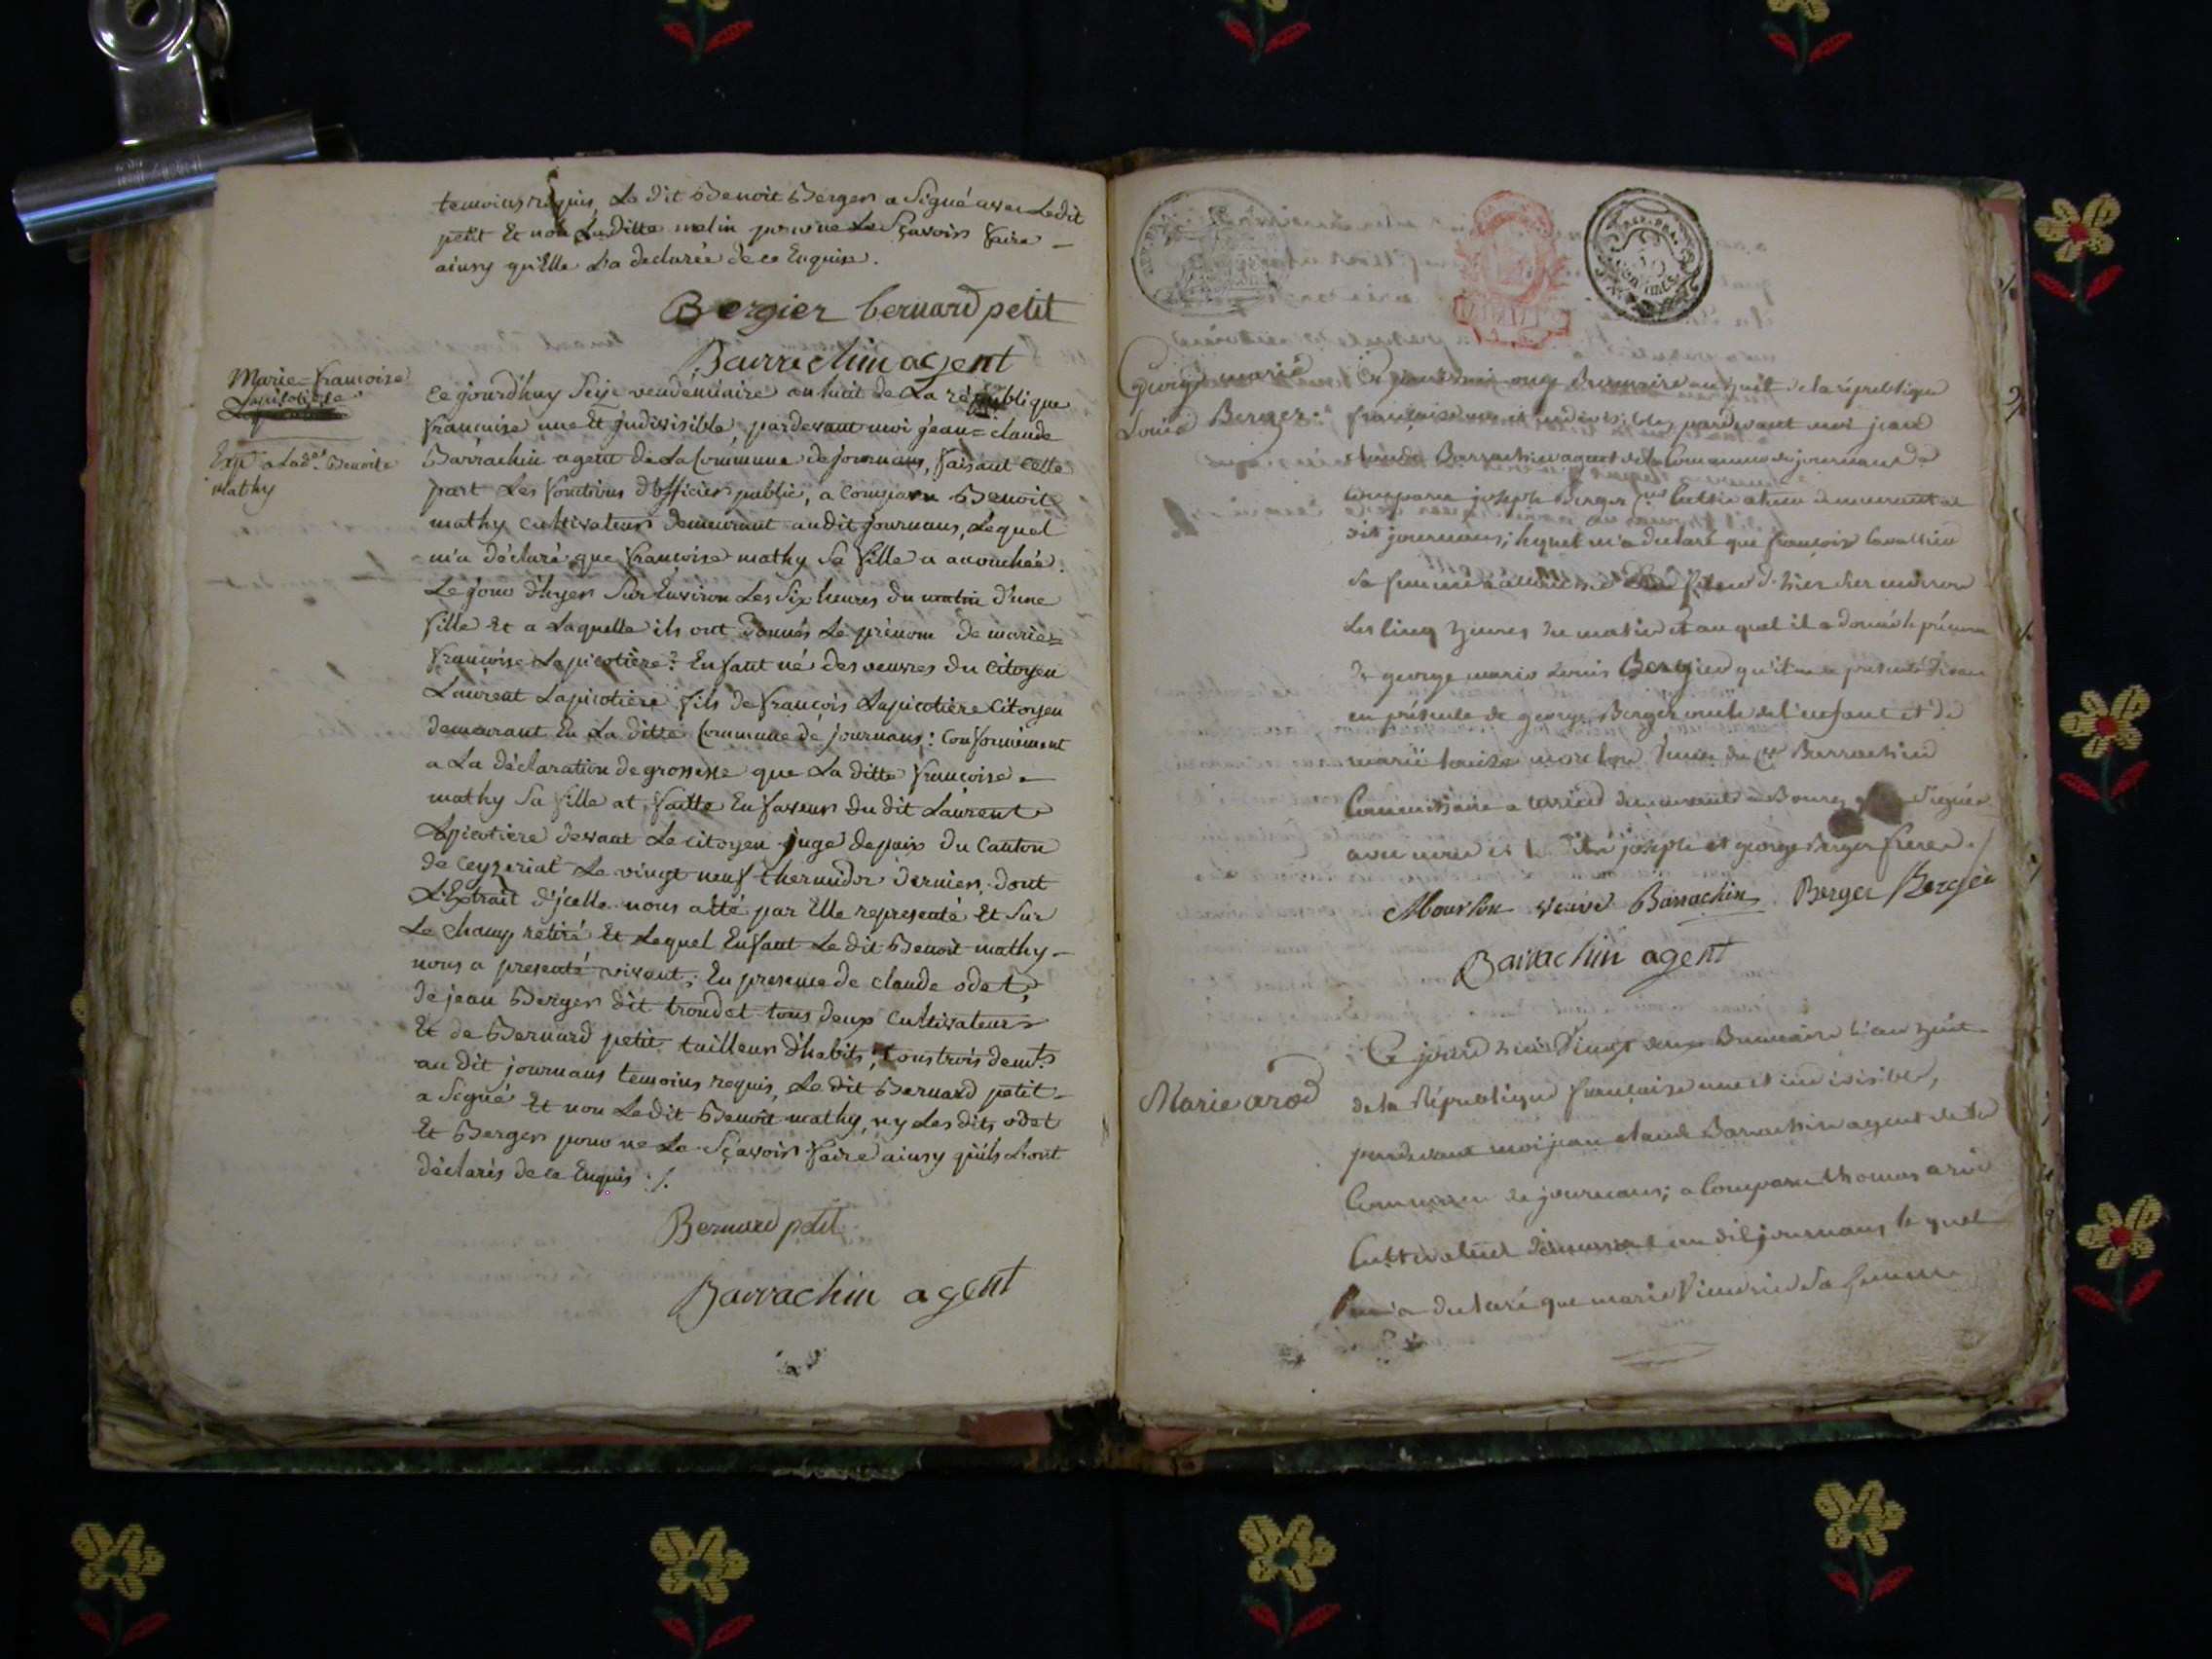 temoins requis, Le dit Benoit Berger a Signé avec Ledit
petit Et non Laditte melin pour ne Le Sçavoir faire -
ainsy qu'Elle L'a declarée de ce Enquise.
Bergier bernard petit
Barrachin agent
Marie-francoise
Lapicotiere
Exp. a Lad. Benoite
mathy
Ce jourd'huy Seize vendémiaire an huit de La république
francaise une Et jndivisible, pardevant moi jean=claude
Barrachin agent de La Commune de journans, faisant Cette
part Les fonctions d'officier public, a Comparu Benoit
mathy Cultivateur demeurant audit journans, Lequel
m'a déclaré que françoise mathy Sa fille a accouchée
Le jour d'hyer Sur Environ Les Six heures du matin d'une
fille Et a Laquelle ils ont donnés Le prénom de marie=
françoise Lapicotière: Enfant né des oeuvres du Citoyen
Laurent Lapicotiere fils de françois Lapicotière Citoyen
demeurant En La ditte Commune de journans: Conformément
a La déclaration de grossesse que La ditte françoise -
mathy Sa fille at, faitte En faveur du dit Laurent
Lapicotiere devant Le citoyen juge de paix du Canton
de Ceyzeriat Le vingt neuf thermidor dernier, dont
L'Extrait d'jcelle nous a été par Elle representé Et Sur
Le champ retiré Et Lequel Enfant Le dit Benoit mathy -
nous a presenté vivant; En presence de claude odet,
de jean Berger dit trondet tous deux Cultivateurs
Et de Bernard petit tailleur d'habits, tous trois demts
au dit journans temoins requis, Le dit Bernard petit -
a Signé Et non Ledit Benoit mathy, ny Les dits odet
Et Berger pour ne Le Sçavoir faire ainsy qu'ils L'ont
déclarés de ce Enquis ./.
Bernard petit
Barrachin agent
George marie
Louis Berger
Ce jourd'hui onze Brumaire an huit de la république
française une et indivisible, pardevant moi jean
claude Barrachin agent de la Commune de journans
Comparu joseph Berger Cultivateur demeurant au
dit journans; lequel m'a declaré que françoise
sa femme d'hier sur environ
Les cinq heures du matin et au quel il a donné le prénom
de george marie Louis Bergier qu'il m'a presenté
en présence de george Berger oncle de l'enfant et de
marie Louise Barrachin
Commissaire demeurant a Bourg Signée
avec moi et le dit joseph et george Berger freres ./
Mourlon veuve Barrachin Berger Bergér
Barrachin agent
Marie arod
Ce jourd'hui Vingt Brumaire l'an huit
de la République française une et indivisible,
pardevant moi jean claude Barrachin agent de la
Commune de journans; a Comparu thomas arod
Cultivateur demeurant au dit journans le quel
m'a declaré que marie sa femme